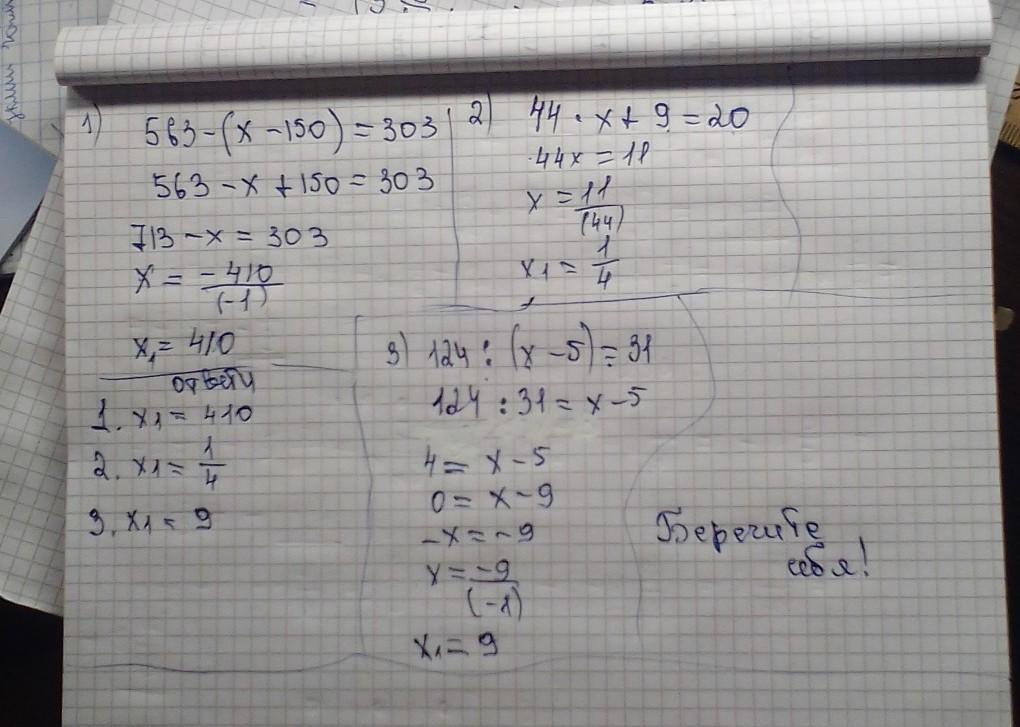 1)
563-(x-150)=303
563-x+150=303
713-x=303
x = -410/(-1)
x₁= 410
ответы
1. x₁= 410
2. x₁= 1/4
3. x₁= 9
2) 44 · x + 9 = 20
44x = 11
x = 11/(44)
x₁ = 1/4
3) 124 : (x-5)=31
124 : 31 = x-5
4 = x-5
0 = x-9
-x = -9
x = -9/(-1)
x₁= 9
Берегите
себя!